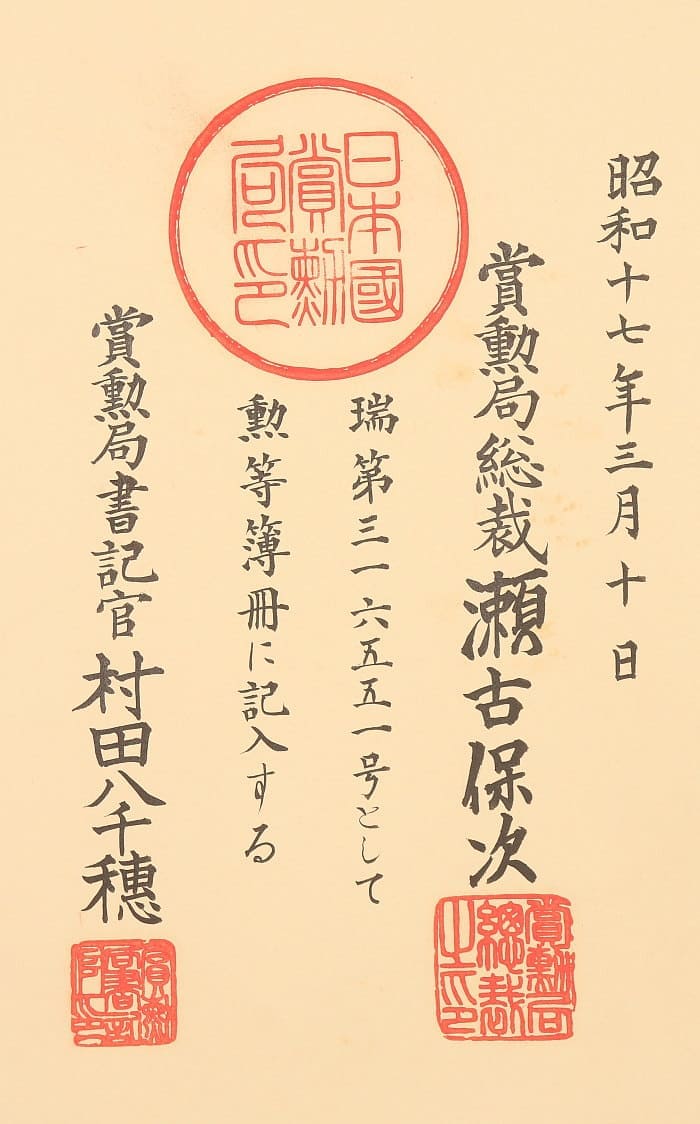 昭和十七年三月十日
賞勲局総裁瀬古保次
瑞第三一六五五一号として
勲等簿冊に記入する
賞勲局書記官村田八千穂
日本國
賞勲
局印
賞勲局
総裁
之印
賞勲
局書記
官印